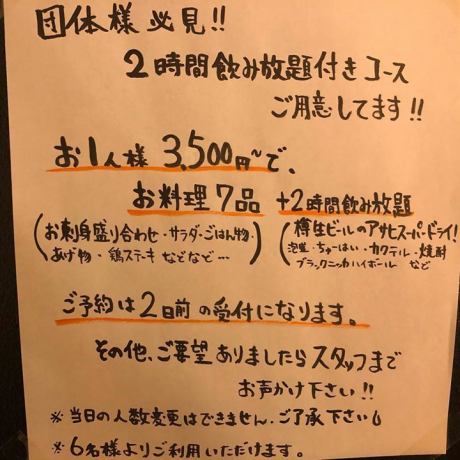 団体様必見!!
2時間飲み放題付きコース
ご用意してます!!
お1人様 3,500円〜で、
お料理7品 +2時間飲み放題
(お刺身盛り合わせ・サラダ・ごはん物・ (樽生ビールのアサヒスーパードライ!
あげ物・鶏ステキ などなど…) 泡盛・ちゅーはい・カクテル・焼酎
ブラックニッカハイボール など)
ご予約は2日前の受付になります。
その他、ご要望ありましたらスタッフまで
お声かけ下さい!!
※当日の人数変更はできません。ご了承下さい
※6名様よりご利用いただけます。